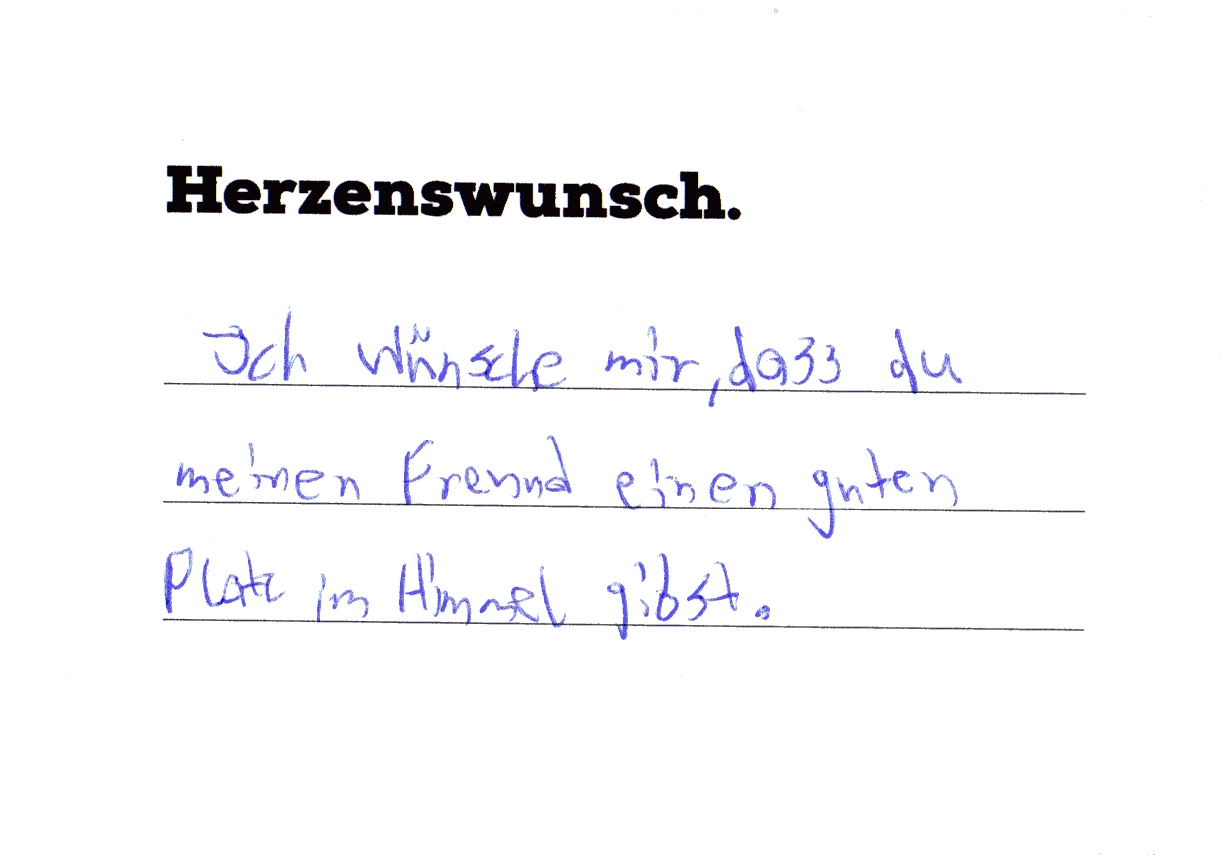 Herzenswunsch.
Ich wünsche mir, dass du
meinen Freund einen guten
Platz im Himmel gibst.